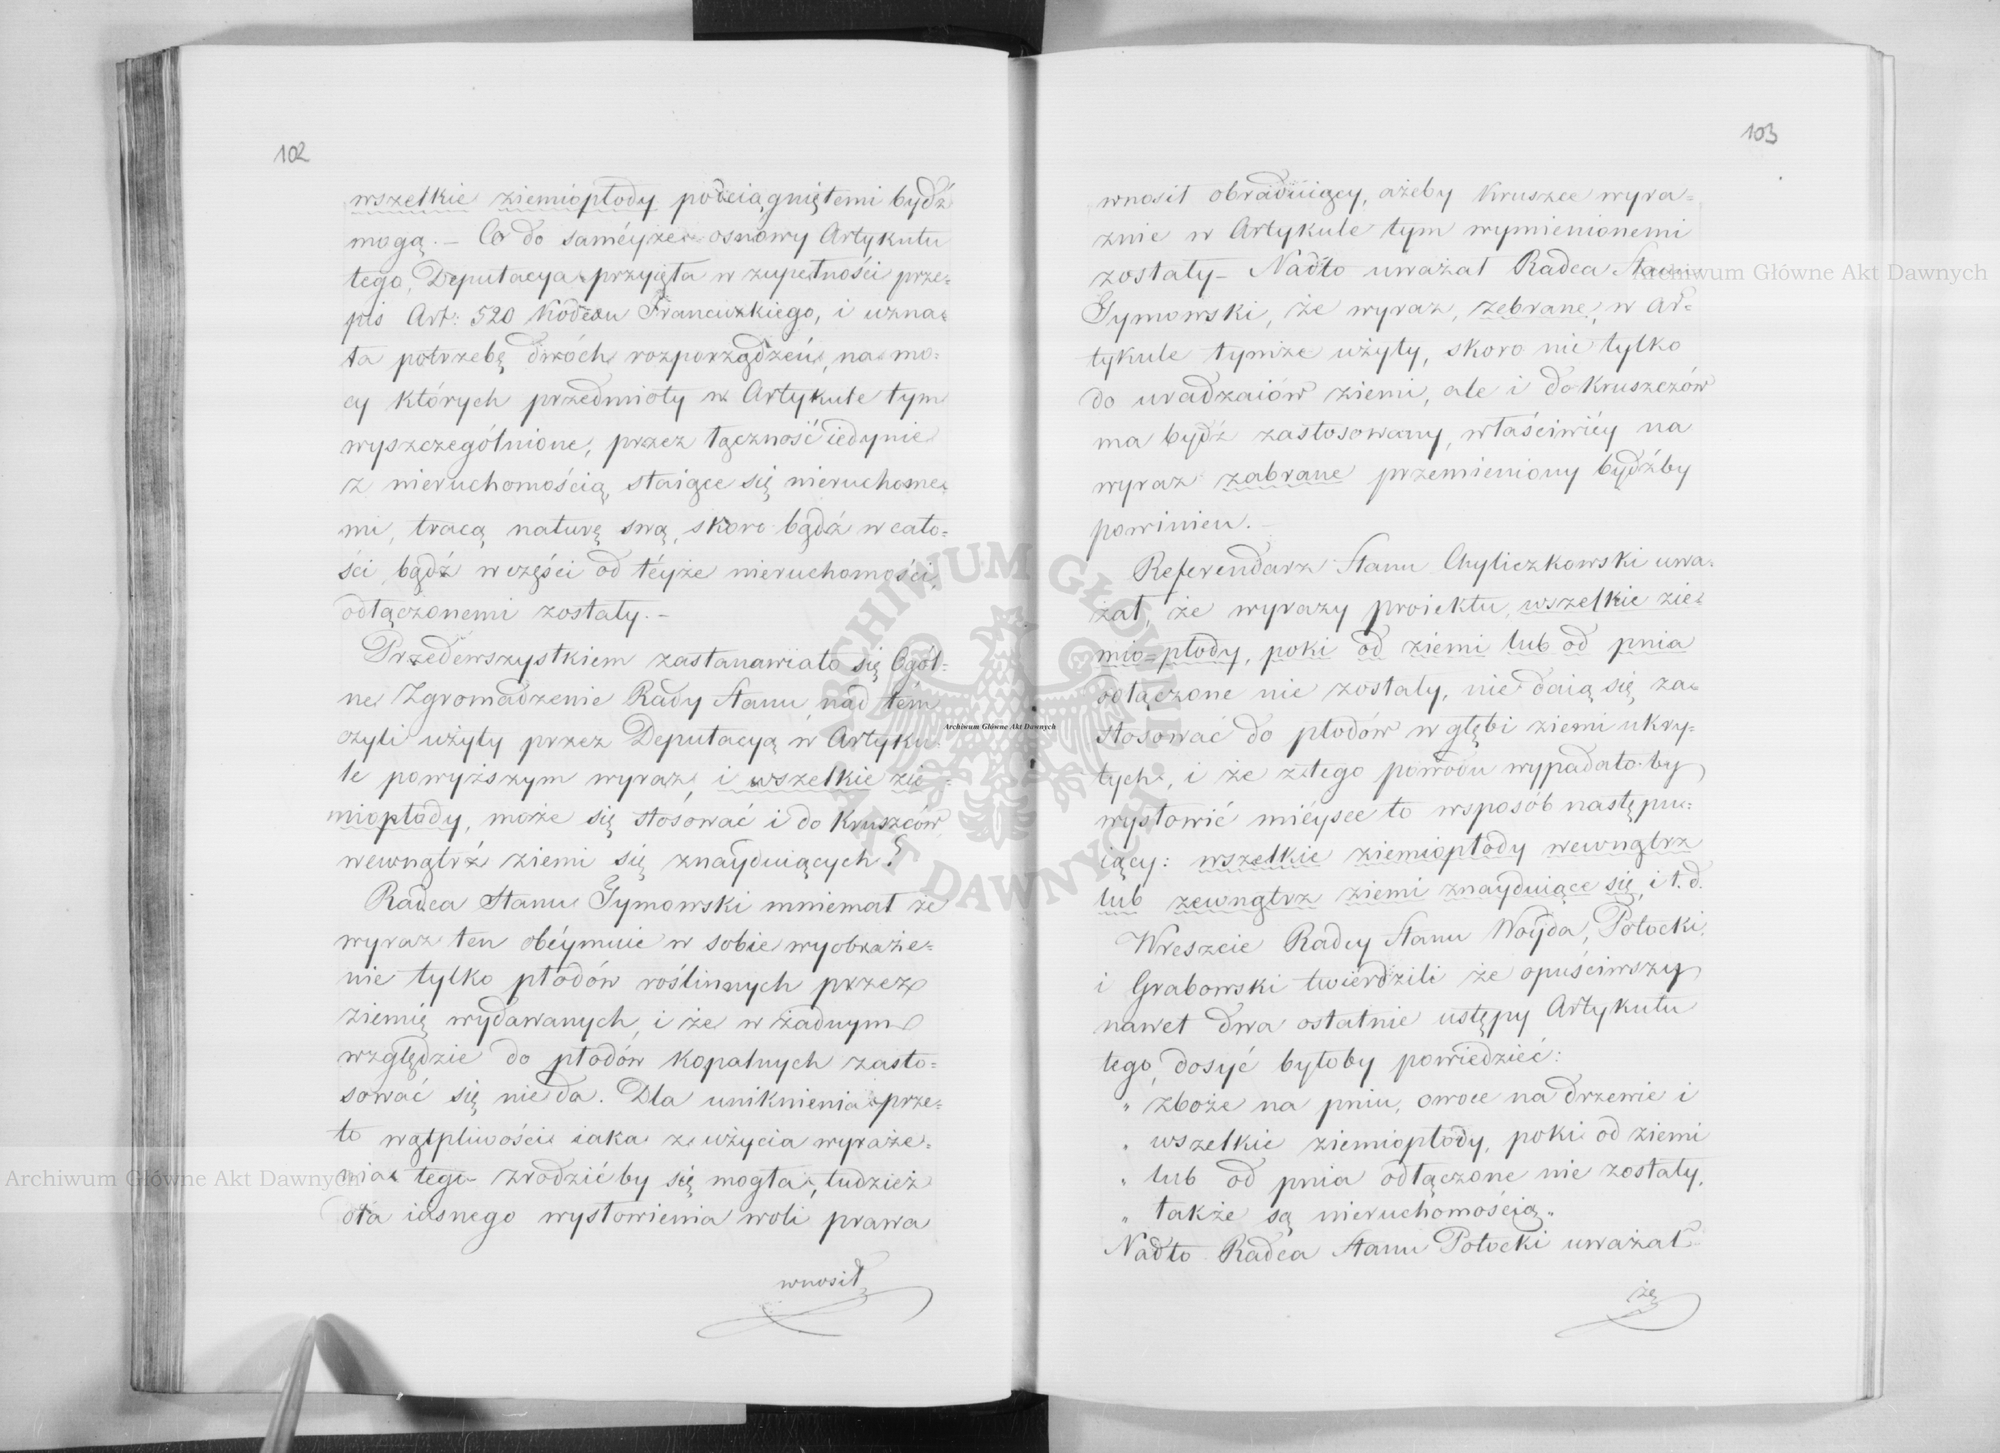 102
wszelkie ziemiopłody podciągniętemi bydź
mogą. – Co do saméyże osnowy Artykułu
tego, Deputacya przyięła w zupełności prze-
pis Art: 520 Kodexu Francuzkiego, i uzna-
ła potrzebę dwóch rozporządzeń, na mo-
cy których przedmioty w Artykule tym
wyszczególnione, przez łączność iedynie
z nieruchomością, staiące się nieruchome-
mi, tracą naturę swą, skoro bądź w cało-
ści bądź w części od téyże nieruchomości
odłączonemi zostały. –
Przedewszystkiem zastanawiało się Ogól-
ne Zgromadzenie Rady Stanu nad tém
czyli użyty przez Deputacyą w Artyku-
le powyższym wyraz, i wszelkie zie-
miopłody, może się stósować i do Kruszców
wewnątrz ziemi się znayduiących?
Radca Stanu Tymowski mniemał że
wyraz ten obéymuie w sobie wyobraże-
nie tylko płodów roślinnych przez
ziemię wydawanych, i że w żadnym
względzie do płodów kopalnych zasto-
sować się nie da. Dla uniknienia prze-
to wątpliwości iaka z użycia wyraże-
nia tego zrodzićby się mogła, tudzież
dla iasnego wysłowienia woli prawa
wnosił
103
wnosił obraduiący, ażeby Kruszce wyra-
znie w Artykule tym wymienionemi
zostały – Nadto uważał Radca Stanu
Tymowski, że wyraz, zebrane, w Ar-
tykule tymże użyty, skoro nie tylko
do uradzaiów ziemi, ale i do Kruszczów
ma bydź zastosowany, właściwiéy na
wyraz zabrane przemieniony bydźby
powinien. –
Referendarz Stanu Chyliczkowski uwa-
żał, że wyrazy proiektu, wszelkie zie-
mio-płody, poki od ziemi lub od pnia
odłączone nie zostały, nie daią się za-
stosować do płodów w głębi ziemi ukry-
tych, i że z tego powodu wypadało by
wysłowić miéysce to wsposób następu-
iący: wszelkie ziemiopłody wewnątrz
lub zewnątrz ziemi znayduiące się, i t. d.
Wreszcie Radcy Stanu Woyda, Potocki,
i Grabowski twierdzili że opuściwszy
nawet dwa ostatnie ustępy Artykułu
tego, dosyć byłoby powiedzieć:
„ zboże na pniu, owoce na drzewie i
„ wszelkie ziemiopłody, poki od ziemi
„ lub od pnia odłączone nie zostały,
„ także są nieruchomością„
Nadto Radca Stanu Potocki uważał
że
Archiwum Główne Akt Dawnych
Archiwum Główne Akt Dawnych
Archiwum Główne Akt Dawnych
ARCHIWUM GŁÓWNE AKT DAWNYCH